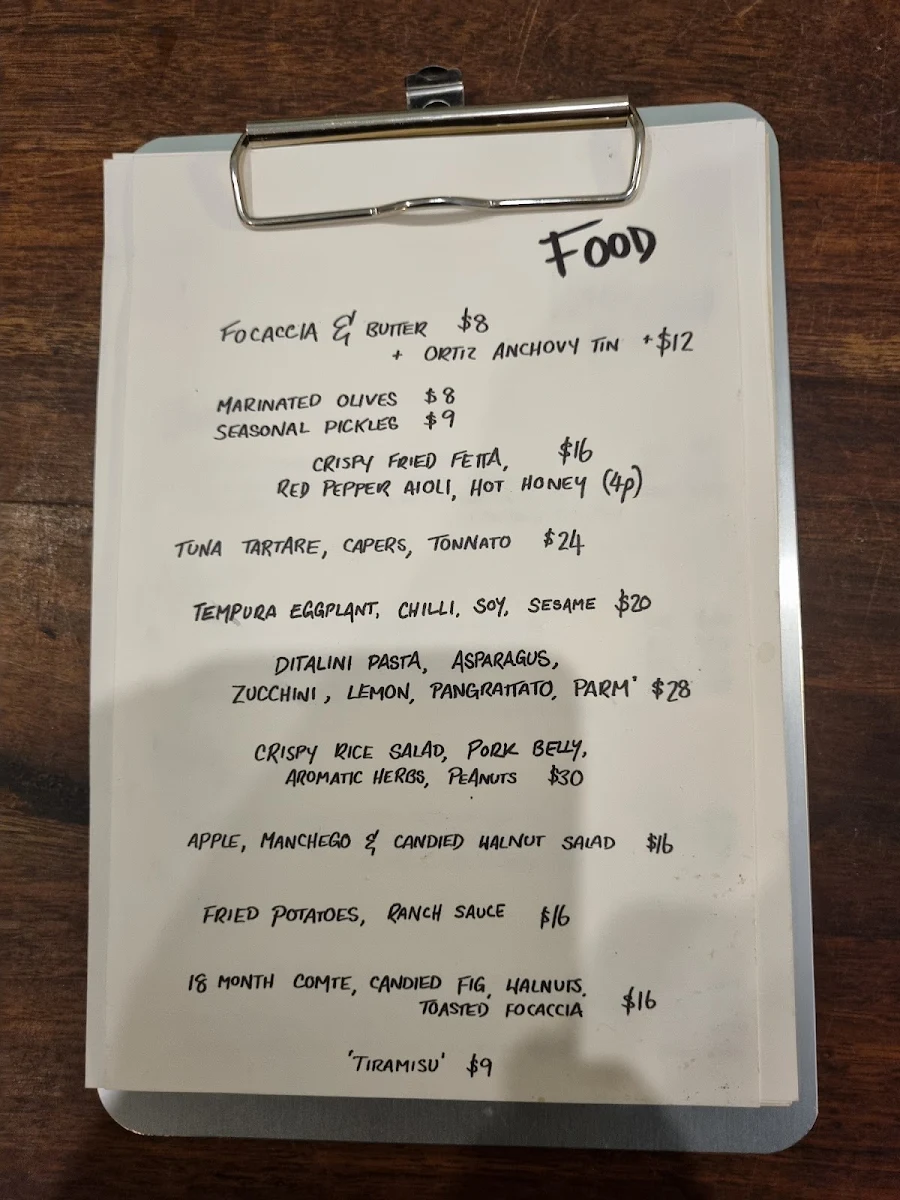 FOOD
FOCACCIA & BUTTER $8
+ ORTIZ ANCHOVY TIN +$12
MARINATED OLIVES $8
SEASONAL PICKLES $9
CRISPY FRIED FETTA, $16
RED PEPPER AIOLI, HOT HONEY (4p)
TUNA TARTARE, CAPERS, TONNATO $24
TEMPURA EGGPLANT, CHILLI, SOY, SESAME $20
DITALINI PASTA, ASPARAGUS,
ZUCCHINI, LEMON, PANGRATTATO, PARM' $28
CRISPY RICE SALAD, PORK BELLY,
AROMATIC HERBS, PEANUTS $30
APPLE, MANCHEGO & CANDIED WALNUT SALAD $16
FRIED POTATOES, RANCH SAUCE $16
18 MONTH COMTE, CANDIED FIG, WALNUTS,
TOASTED FOCACCIA $16
'TIRAMISU' $9